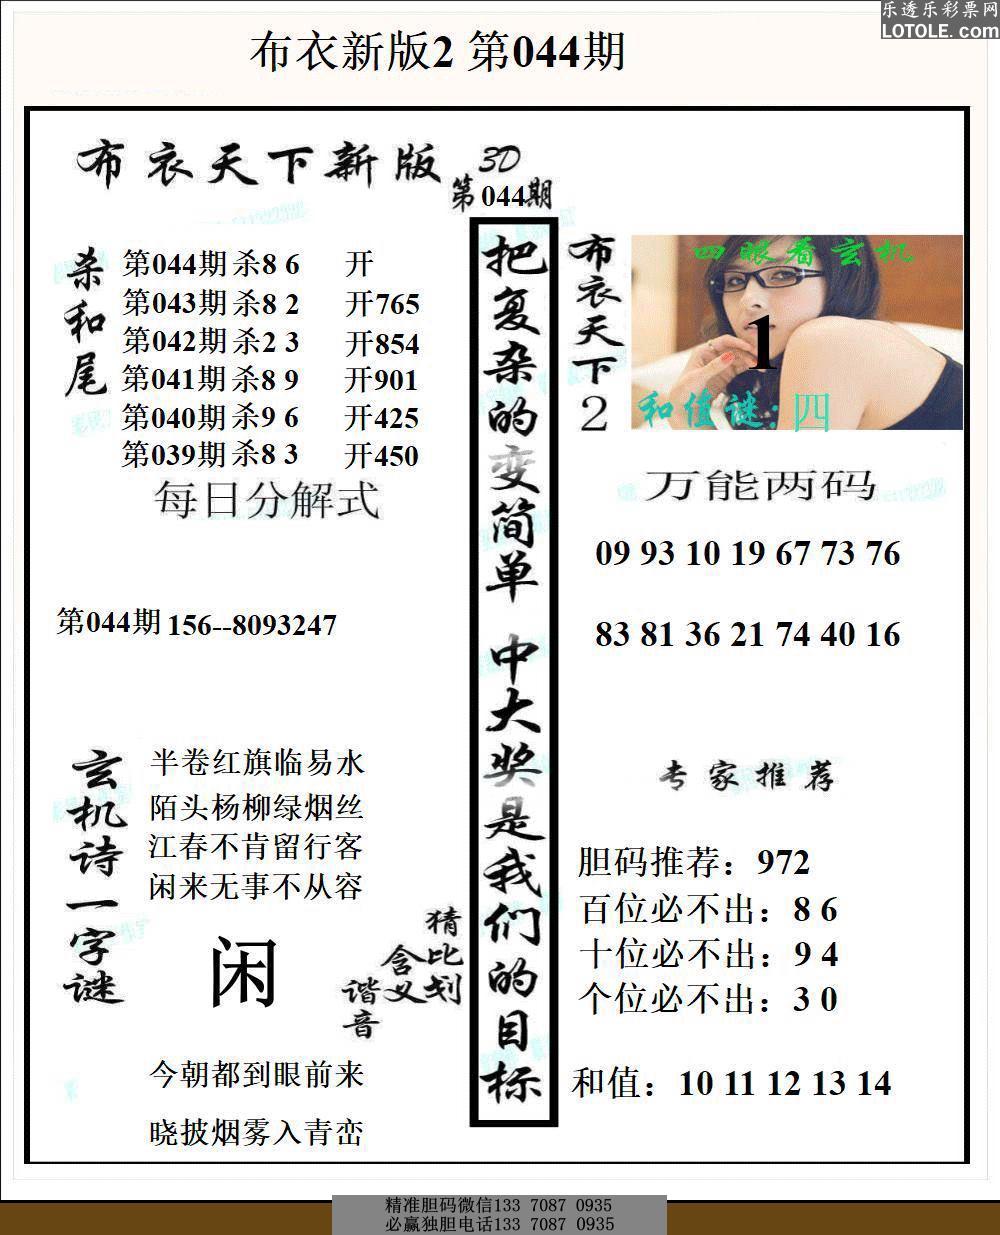 乐透乐彩票网
LOTOLE.com
布衣新版2 第044期
布衣天下新版 3D
第044期
杀和尾
第044期 杀8 6 开
第043期 杀8 2 开765
第042期 杀2 3 开854
第041期 杀8 9 开901
第040期 杀9 6 开425
第039期 杀8 3 开450
每日分解式
第044期 156--8093247
玄机诗一字谜
半卷红旗临易水
陌头杨柳绿烟丝
江春不肯留行客
闲来无事不从容
闲
猜比划
含义
谐音
今朝都到眼前来
晓披烟雾入青峦
把复杂的变简单 中大奖是我们的目标
布衣天下2
四眼看玄机
1
和值谜:四
万能两码
09 93 10 19 67 73 76
83 81 36 21 74 40 16
专家推荐
胆码推荐：972
百位必不出：8 6
十位必不出：9 4
个位必不出：3 0
和值：10 11 12 13 14
精准胆码微信133 7087 0935
必赢独胆电话133 7087 0935